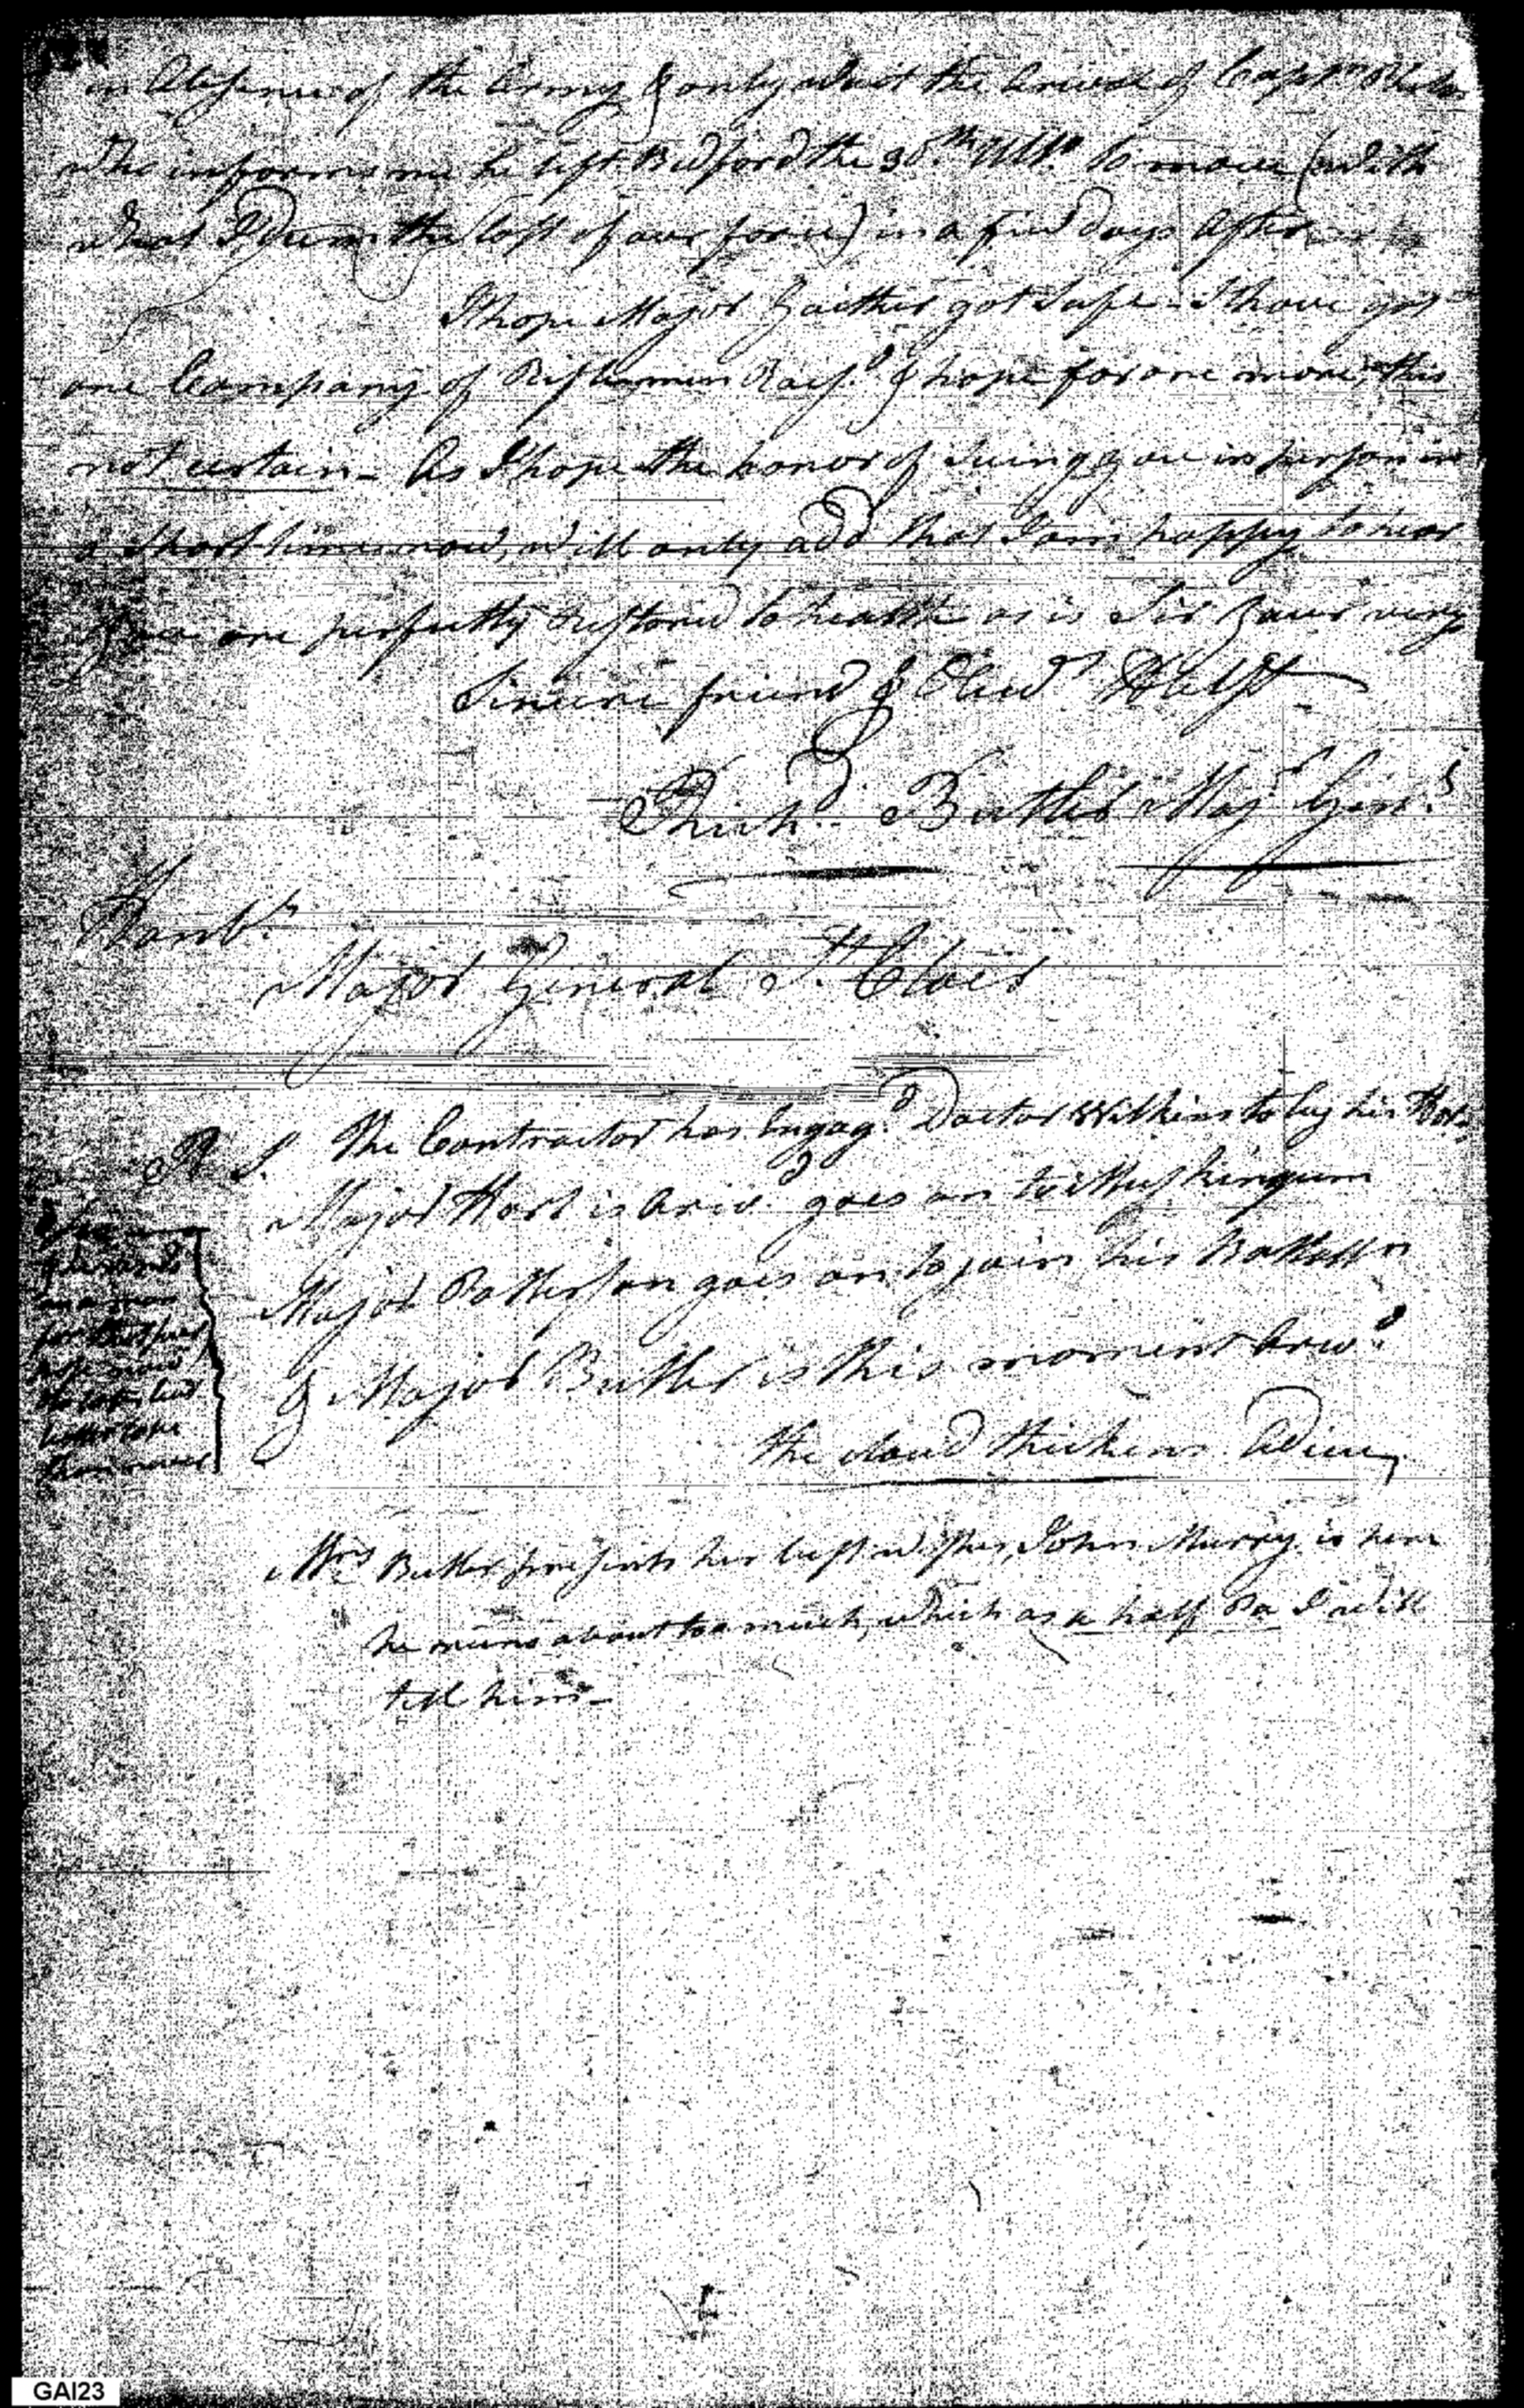 in Absence of the Army & only await the Arival of Capt.n
who informs me he left Bedford the 30.th Ult.o to move (with
what I deem the last of our force) in a few days after
I hope Major Gaither got safe - I have got
one Company of Riflemen Rais.d & hope for one more, this
not certain - As I hope the honor of seeing you in person in
a short time now, will only add that I am happy to hear
you are perfectly restored to health as is Sir your very
Sincere friend & Obed.t H
Rich.d Butler Maj.r Gen.l
Honb.l
Major General S.t Clair
P. S. The Contractor has Engag.d Doctor Wilkins to buy his
Major Hart is Ariv.d goes on to Muskingum
Major Patterson goes on to join his Battall.n
& Major Butler is this moment Ariv.d
the cloud thickens. Adieu,
Mrs Butler presents her best wishes, John Murry is here
he runs about too much, which as a half Pa I will
tell him -
on a man
better late
than never
GAI23